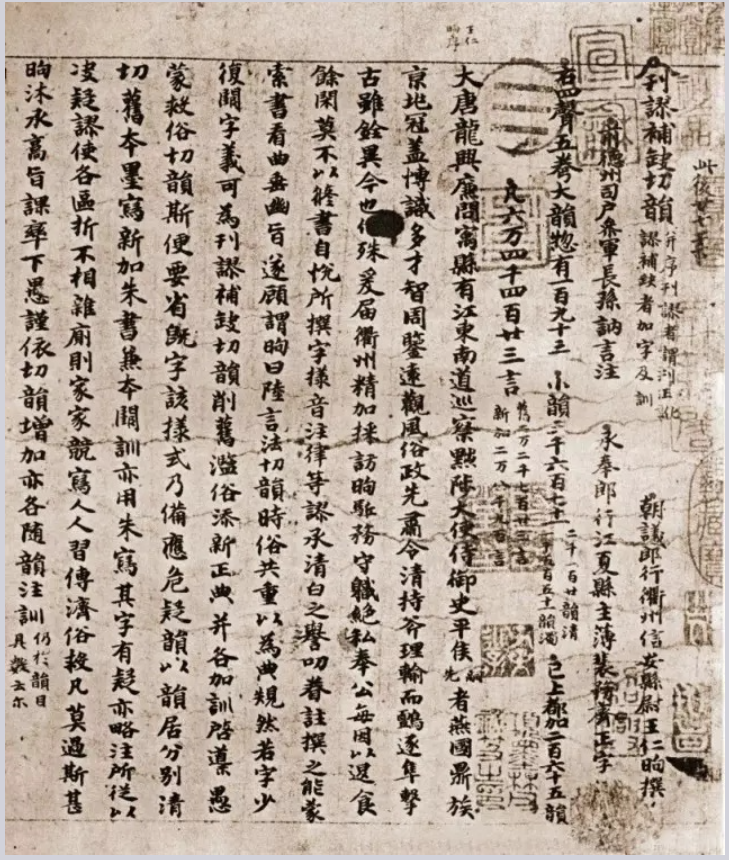 刊謬補缺切韻 并序刊謬者謂刊正訛謬補缺者加字及訓 朝議郎行衢州信安縣尉王仁昫撰
德州司戶參軍長孫訥言注 承奉郎行江夏縣主簿裴務齊正字
右四聲五卷大韻惣有一百九十三 小韻三千六百七十一 二千一百廿韻清 一千五百五十一韻濁 已上都加二百六十五韻
凡六万四千四百廿三言 舊二万二千七百廿三言 新加二万八千九百言
大唐龍興廉問寓縣有江東南道巡察黜陟大使侍御史平侯嗣先者燕國鼎族
京地冠盖博識多才智周鑒遠觀風俗政先肅令清持斧理輪而鷂逐隼擊
古雖銓異今也何殊爰届衢州精加採訪昫駈務守軄絕私奉公每因以退食
餘閑莫不以簷書自悅所撰字樣音注律等謬承清白之譽叨眷註撰之能蒙
索書看曲垂幽旨遂顧謂昫曰陸言法切韻時俗共重以為典䂓然若字少
復闕字義可為刊謬補缺切韻削舊濫俗添新正典并各加訓啓導禀愚
蒙救俗切韻斯便要省既字該樣式乃備應危疑韻以韻居分別清
切舊本墨寫新加朱書兼本闕訓亦用朱寫其字有疑亦略注所從以
決疑謬使各區折不相雜廁則家家競寫人人習傳濟俗救凡莫過斯甚
昫沐承高旨課率下愚謹依切韻增加亦各随韻注訓 仍於韻目具數云尓
王仁昫序